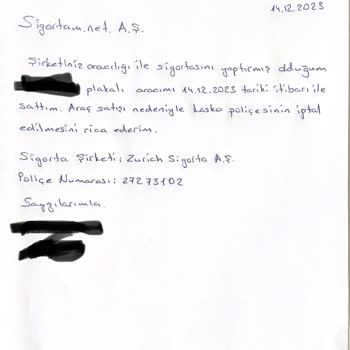 14.12.2023
Sigortam.net. A.Ş.
Şirketiniz aracılığı ile sigortasını yaptırmış olduğum
plakalı aracımı 14.12.2023 tarihi itibarı ile
sattım. Araç satışı nedeniyle kasko poliçesinin iptal
edilmesini rica ederim.
Sigorta Şirketi: Zurich Sigorta A.Ş.
Poliçe Numarası: 27273102
Saygılarımla.